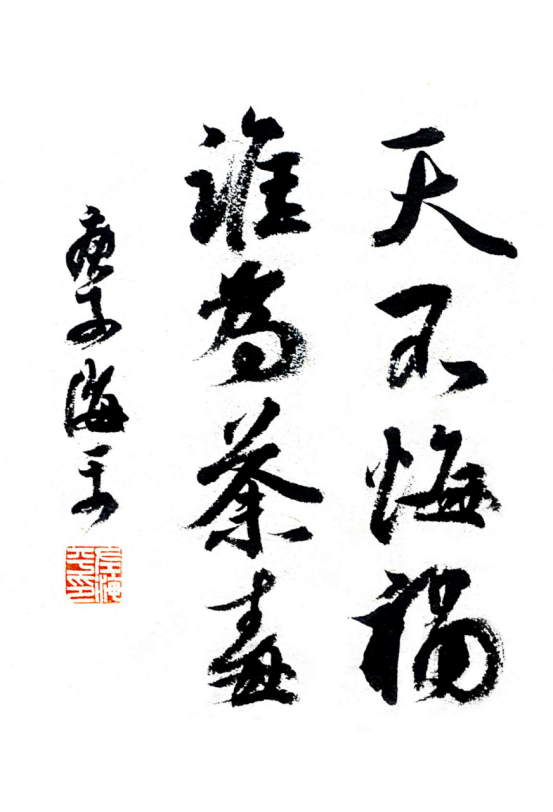 天不悔禍
誰為荼毒
庚子海平